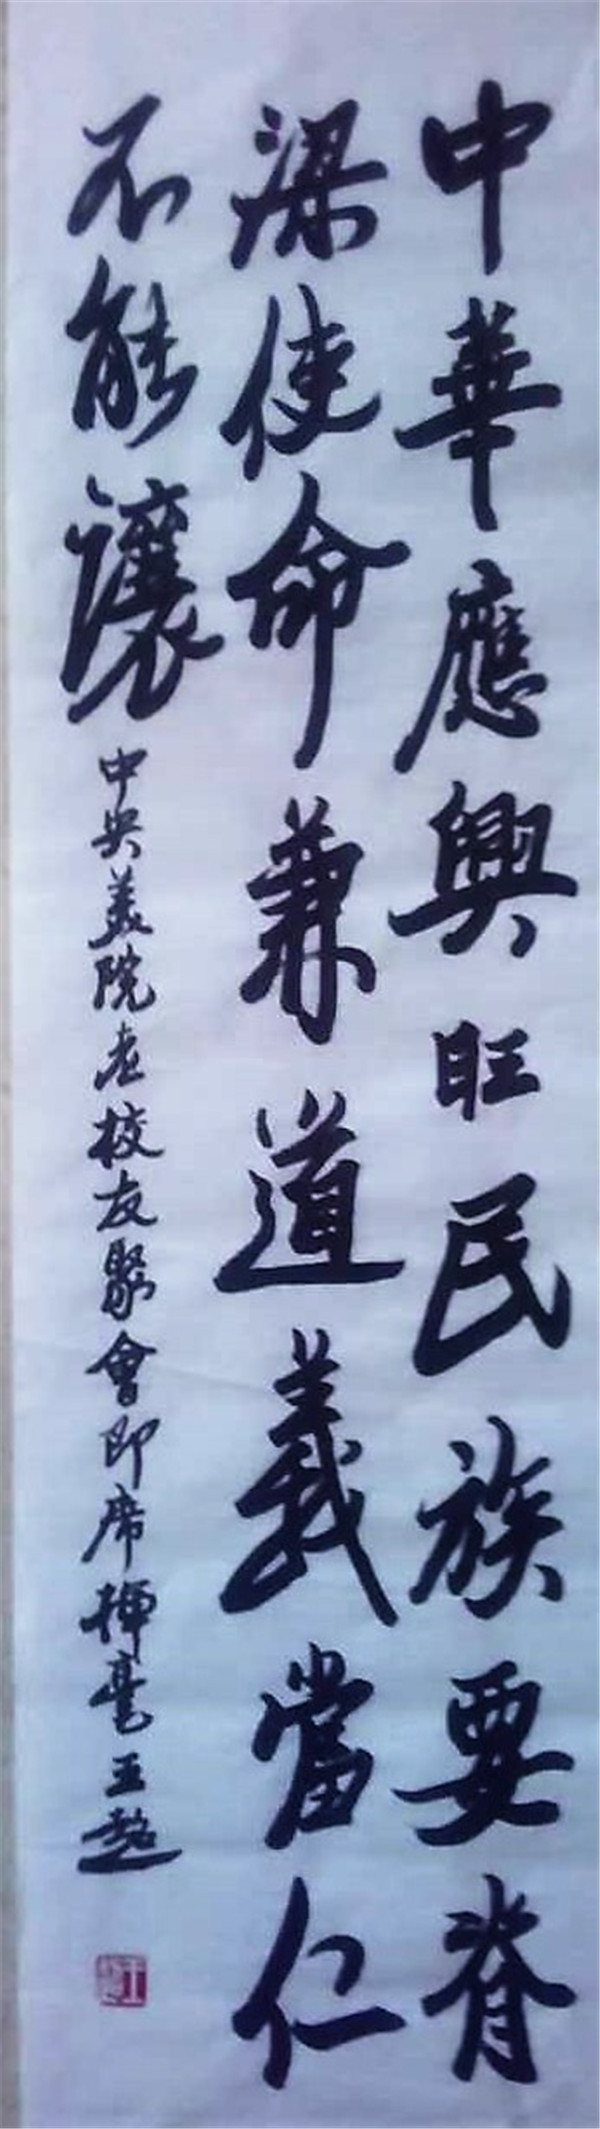 中華應興旺民族要脊
梁使命兼道義當仁
不能讓
中央美院老校友聚會即席揮毫王超